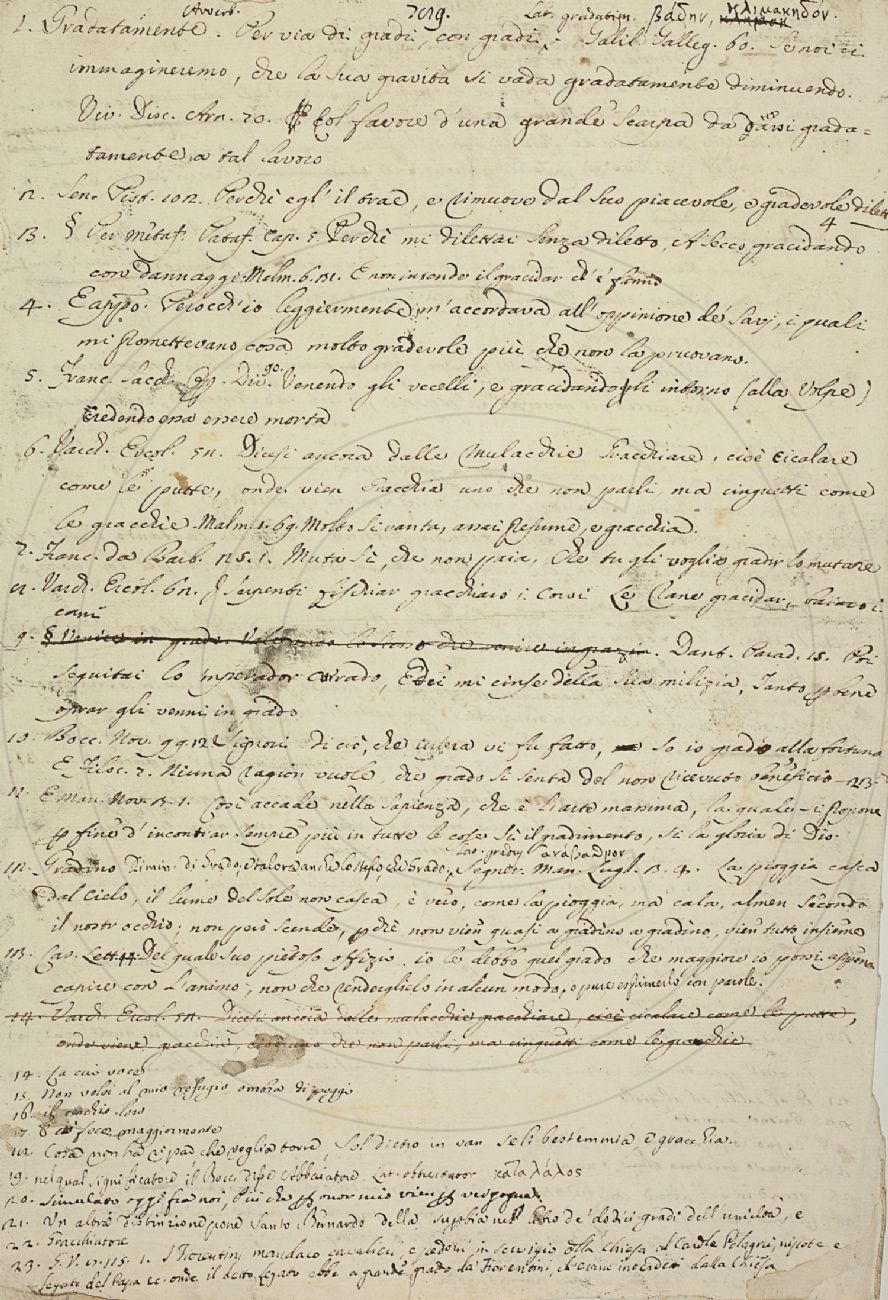 Avverb. Lat. gradatim. βάδην, κλιμακηδόν.
1. Gradatamente. Per via di gradi, con gradi. Galil. Galleg. 60. Se noi ci
immagineremo, che la sua gravità si vada gradatamente diminuendo.
Viv. Disc. Arn. 20. Col favore d'una grande scarpa da darsi grada-
tamente a tal lavoro
2. Sen. Pist. 102. Perchè egl' il trae, e rimuove dal suo piacevole, e gradevole dilett
4
3. § Per metaf. Pataf. Cap. 5. Perchè mi dilettai senza diletto, A secco gracidando
con dannaggi. Malm. 6. E non intendo il gracidar ch' e' fanno
4. E appo. Perocch'io leggiermente m'accordava all'oppinione de' Savj, i quali
mi promettevano cosa molto gradevole più che non la pruovano.
5. Franc. Sacch. Op. Div. 90. Venendo gli uccelli, e gracidandogli intorno (alla Volpe)
credendo essa essere morta
6. Varch. Ercol. 52. Dicesi ancora dalle Mulacchie Gracchiare, cioè cicalare
come le putte, onde vien Gracchia uno che non parli, ma cinguetti come
le gracchie. Malm. 1. 69. Molto si vanta, assai presume, e gracchia.
7. Franc. da Barb. 25. 1. Muta sì, che non paia, Che tu gli voglia gradir lo mutare
8. Varch. Ercol. 62. I serpenti fischiar gracchiano i Corvi Le Rane gracidar, baiano i
cani
9. § Venire in grado. Dant. Parad. 15. Poi
seguitai lo 'mperador Currado, Ed ei mi cinse della sua milizia, Tanto per bene
oprar gli venni in grado
10. Bocc. Nov. 99. 12. Signori di ciò, che iersera vi fu fatto, so io grado alla fortuna
E Filoc. 7. Niuna ragion vuole, che grado si senta del non ricevuto beneficio 23.
11. E Man. Nov. 13. 1. Così accade nella Sapienza, che è l'arte massima, la quale si propone
per fine d'incontrar sempre più in tutte le cose sì il gradimento, sì la gloria di Dio.
Lat. gradus
12. Gradino Dimin. di Grado; e talora anche lo stesso che Grado. Segner. Man. Lugl. 13. 4. La pioggia casca
dal Cielo, il lume del Sole non casca, è vero, come la pioggia, ma cala, almen secondo
il nostr'occhio; non però scende, perchè non vien quasi a gradino a gradino, vien tutto insieme
13. Cas. Lett. Del quale suo pietoso offizio io le debbo quel grado che maggiore io possa appena
capire con l'animo, non che renderglielo in alcun modo, o pure esprimerlo con parole.
14. Varch. Ercol. 52. Dicesi ancora dalle mulacchie gracchiare, cioè cicalare come le putte,
onde viene gracchia, cioè uno che non parli, ma cinguetti come le gracchie
14. La cui voce
15. Non volsi al mio refugio ombra di poggi
16. il cerchio loro
17. maggiormente
18. Cosa non ha ripar che voglia torre, Sol dietro in van se li bestemmia, e gracchia.
19. nel qual significato il Bocc. disse Abbaiatore. Lat. obtrectator κατάλαλος
20. Simularo oggi fra noi, Più che per amor mio vien per vergogna
21. Un altra distinzione pone Santo Bernardo della Superbia nel Libro de' dodici gradi dell'umiltà, e
22. Gracchiatore
23. G. V. 1. I Fiorentini mandaro cavalieri, e pedoni in servigio della Chiesa al Cardle Pelagrù, nipote e
legato del Papa ec. onde il detto legato ebbe a grande grado da' Fiorentini, ch'erano interdetti dalla Chiesa